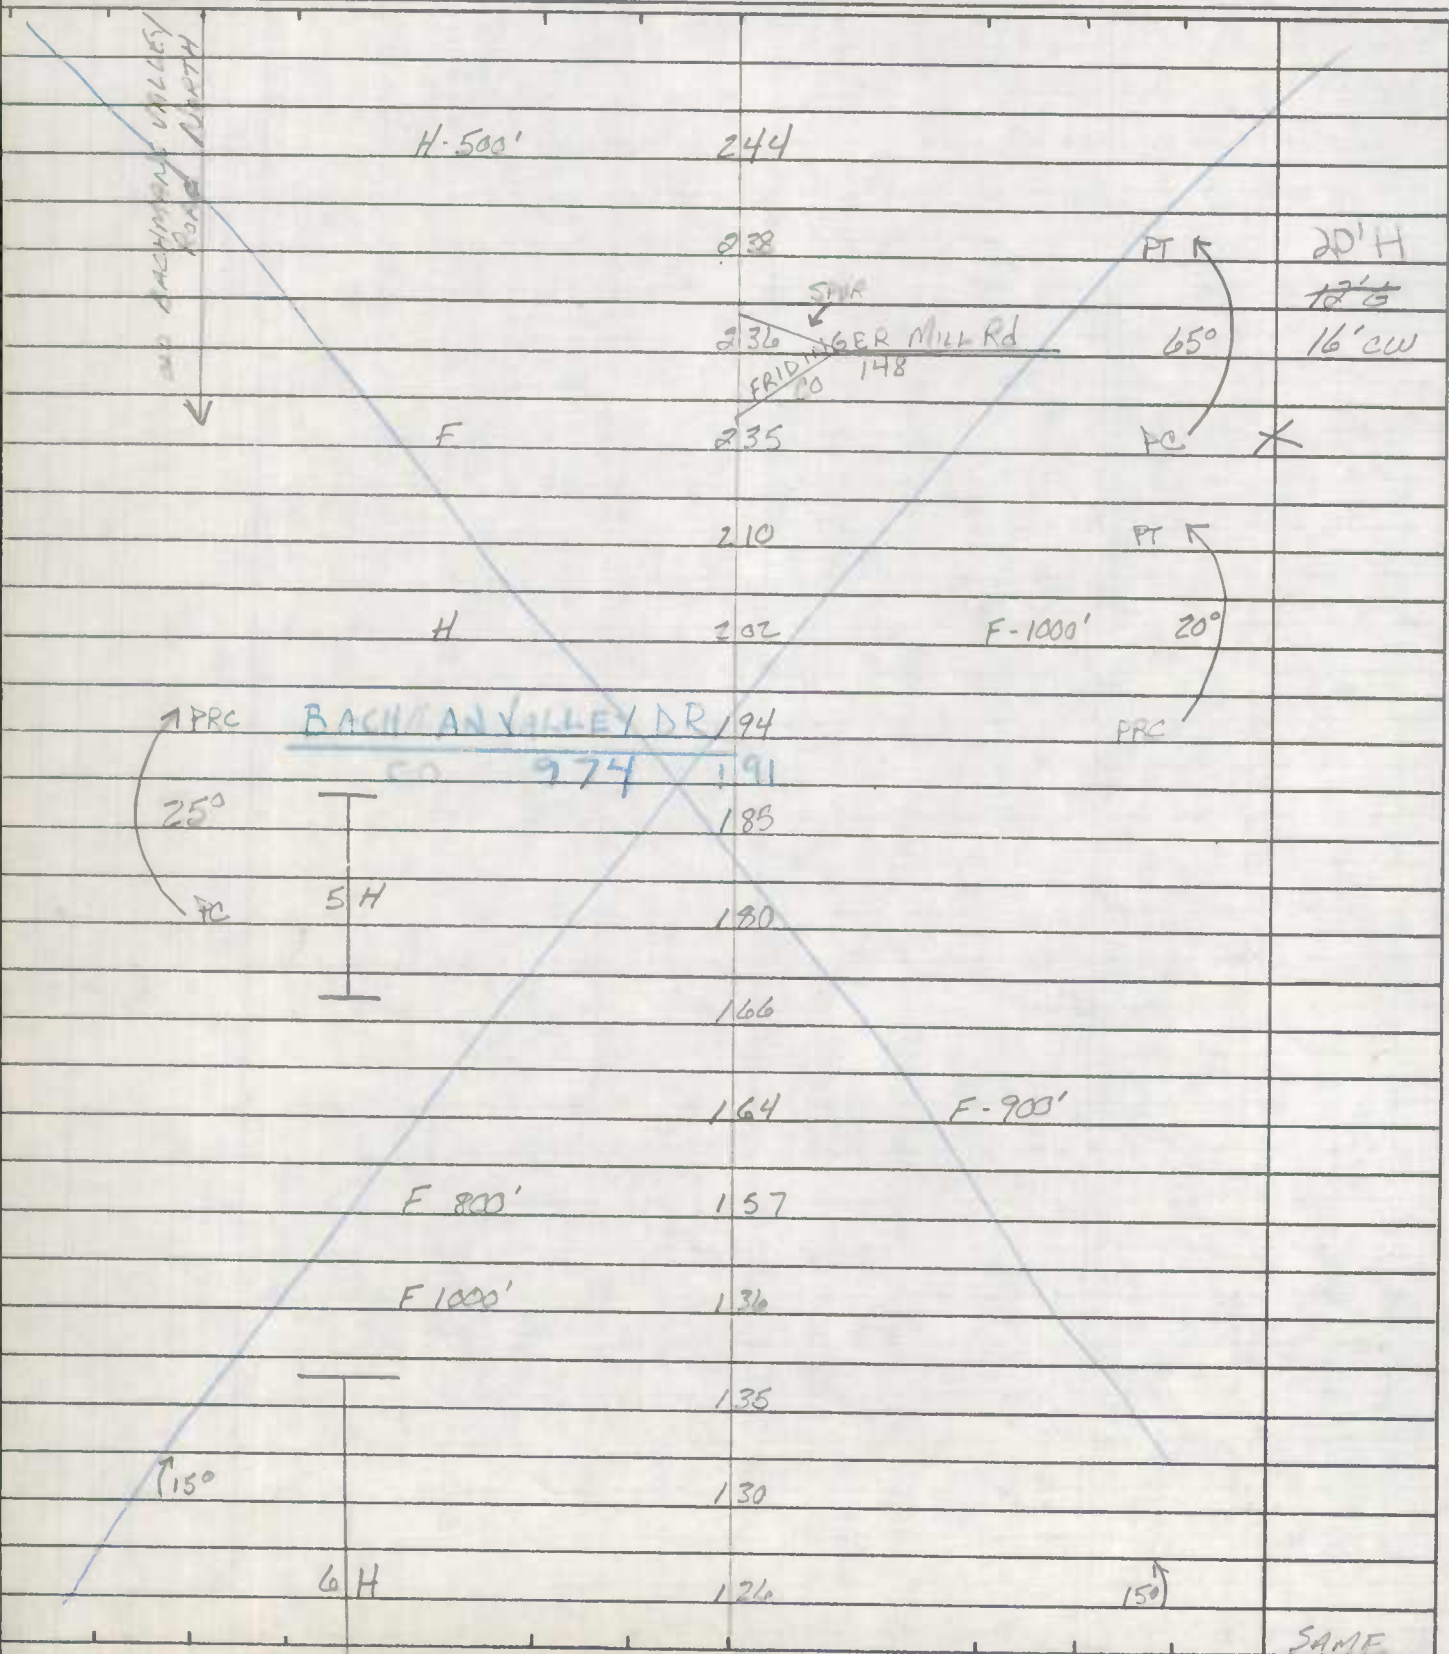 OLD BACHMANS VALLEY
ROAD NORTH
H-500' 244
238 PT 20'H
SPUR 12'G
236 FRIDINGER MILL Rd 65° 16'CW
CO 148
F 235 PC X
210 PT
H 202 F-1000' 20°
PRC BACHMAN VALLEY DR 194 PRC
CO 974 191
25° 185
PC 5 H 180
166
164 F-900'
F 800' 157
F 1000' 136
135
15° 130
6 H 126 15°
SAME